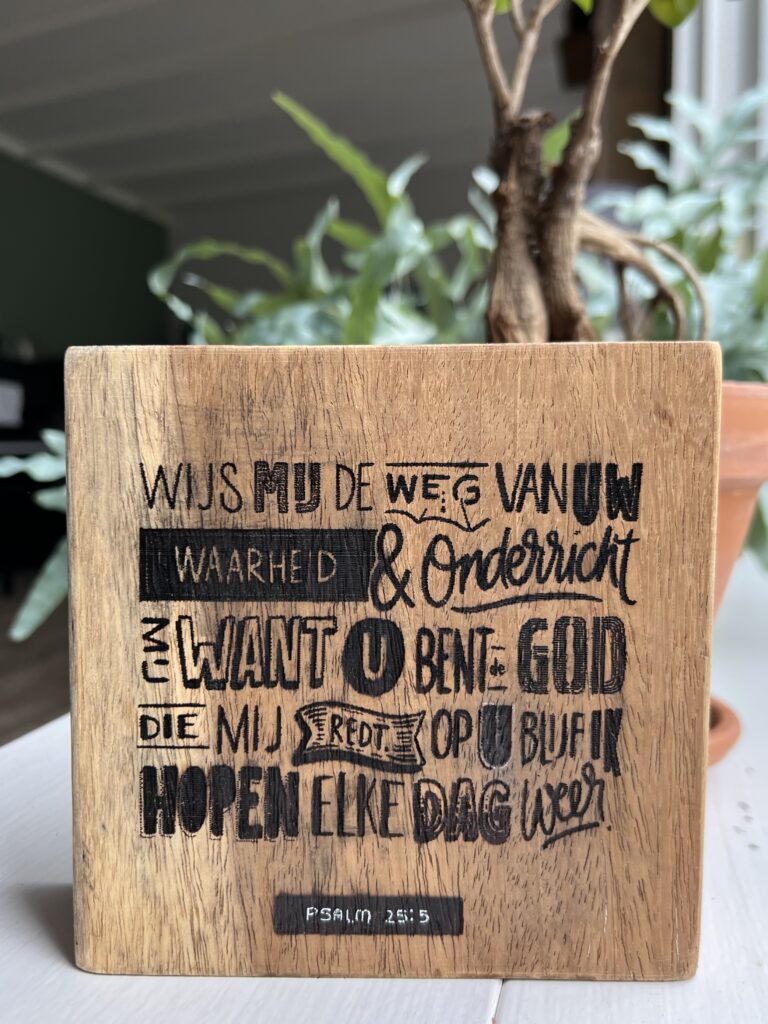 WIJS MIJ DE WEG VAN UW
WAARHEID & Onderricht
MIJ WANT U BENT de GOD
DIE MIJ REDT. OP U BLIJF IK
HOPEN ELKE DAG weer.
PSALM 25:5